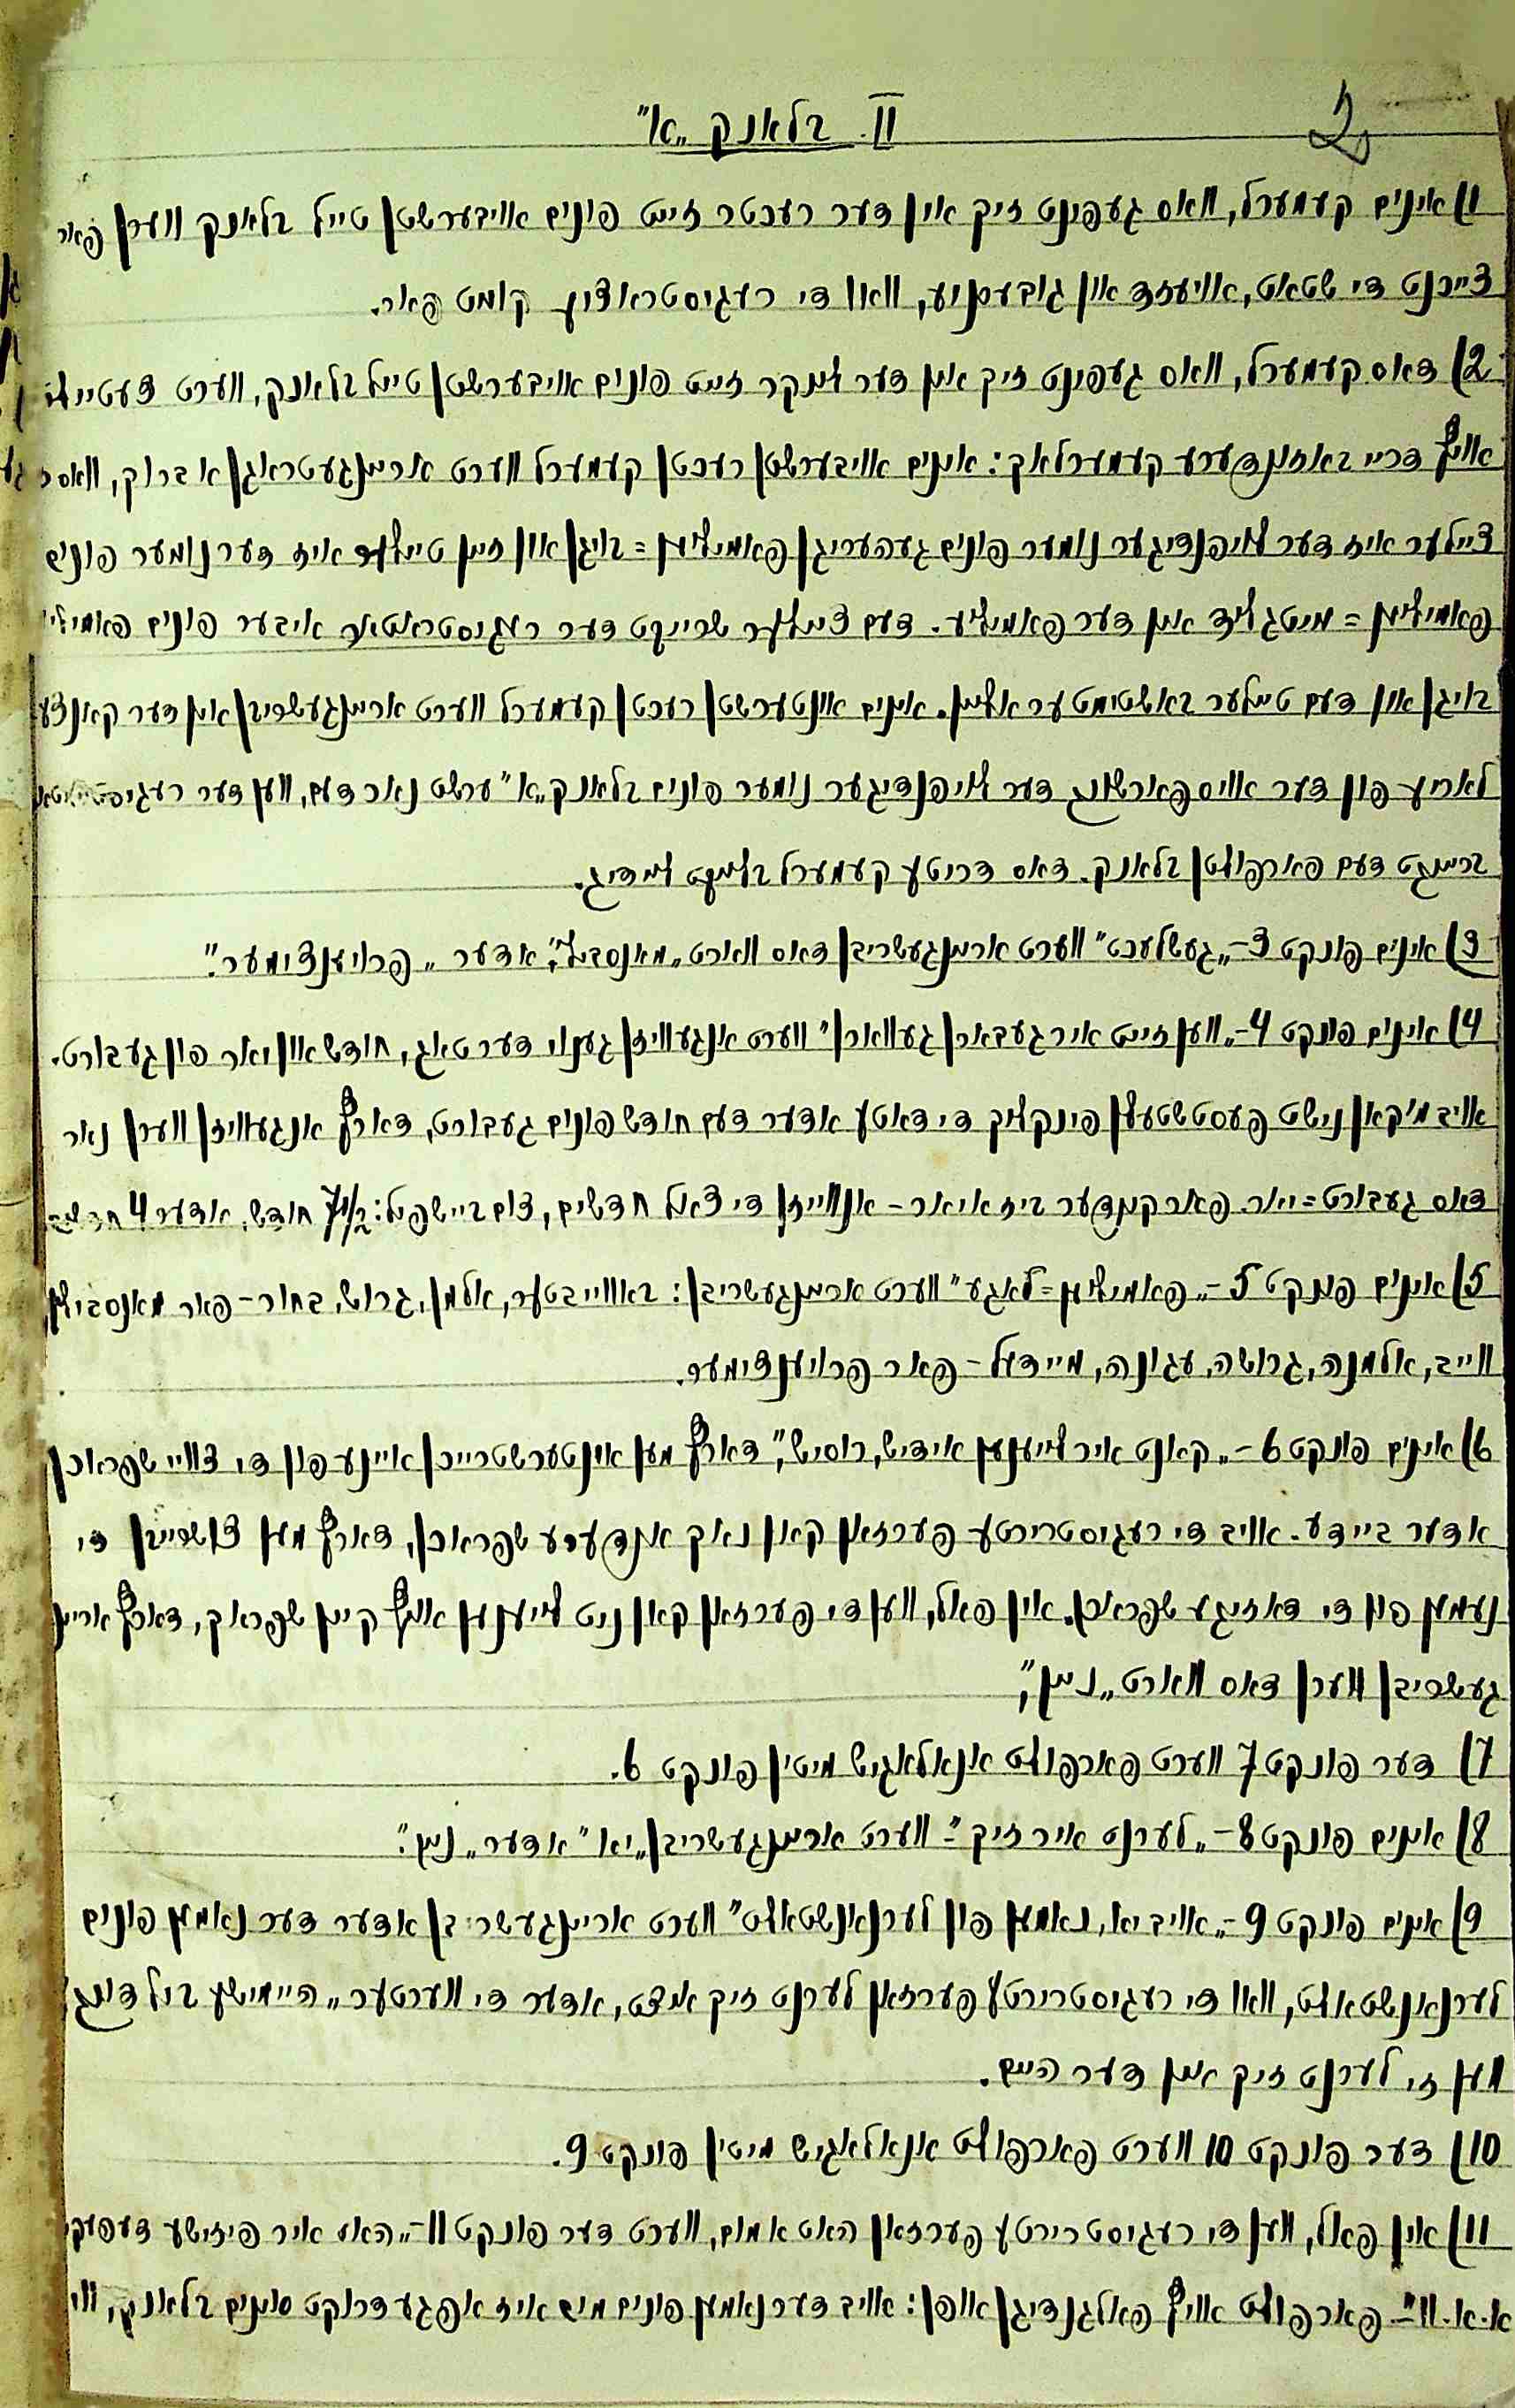 2
II. בלאנק „א"
1) אינים קעמערל, וואס געפינט זיך אין דער רעכטר זייט פונים אויבערשטן טייל בלאנק ווערן פאר
צייכנט די שטאט, אויעזד און גובערניע, וואו די רעגיסטראציע קומט פאר.
2) דאס קעמערל, וואס געפינט זיך אין דער לינקר זייט פונים אויבערשטן טייל בלאנק, ווערט צעטיילט
אויף דריי באזונדערע קעמערלאך: אינים אויבערשטן רעכטן קעמערל ווערט אריינגעטראגן א ברוך, וואס
ציילער איז דער לויפנדיגער נומער פונים געהעריגן פאמיליען=בויגן און זיין טיילער איז דער נומער פונים
פאמיליען=מיטגליד אין דער פאמיליע. דעם ציילער שרייבט דער רעגיסטראטאר איבער פונים פאמילי
בויגן און דעם טיילער באשטימט ער אליין. אינים אונטערשטן רעכטן קעמערל ווערט אריינגעשריבן אין דער קאנצע
לאריע פון דער אויספארשונג דער לויפנדיגער נומער פונים בלאנק „א" ערשט נאך דעם, ווען דער רעגיסטראטאר
ברייינגט דעם פארפולטן בלאנק. דאס דריטע קעמערל בלייבט ליידיג.
3) אינים פונקט 3 – „געשלעכט" ווערט אריינגעשריבן דאס ווארט „מאנסביל", אדער „פרויענצימער".
4) אינים פונקט 4 – „ווען זייט איר געבארן געווארן" ווערט אנגעוויזן גענוי דער טאג, חודש און יאר פון געבורט.
אויב מ'קאן נישט פעסטשטעלן פינקליך די דאטע אדער דעם חודש פונים געבורט, דארף אנגעוויזן ווערן נאר
דאס געבורט=יאר. פאר קינדער ביז א יאר – אנווייזן די צאל חדשים, צום ביישפיל: 7½ חודש, אדער 4 חדשים
5) אינים פונקט 5 – „פאמיליען=לאגע" ווערט אריינגעשריבן: באווייבטער, אלמן, גרוש, בחור – פאר מאנסבילן,
ווייב, אלמנה, גרושה, עגונה, מיידל – פאר פרויענצימער.
6) אינים פונקט 6 – „קאנט איר לייענען אידיש, רוסיש", דארף מען אונטערשטרייכן איינע פון די צוויי שפראכן
אדער ביידע. אויב די רעגיסטרירטע פערזאן קאן נאך אנדערע שפראכן, דארף מען צושרייבן די
נעמען פון די דאזיגע שפראכן. אין פאל, ווען די פערזאן קאן ניט לייענען אויף קיין שפראך, דארף אריין
געשריבן ווערן דאס ווארט „ניין",
7) דער פונקט 7 ווערט פארפולט אנאלאגיש מיטין פונקט 6.
8) אינים פונקט 8 – „לערנט איר זיך" – ווערט אריינגעשריבן „יא" אדער „ניין".
9) אינים פונקט 9 – „אויב יא, נאמען פון לערנאנשטאלט" ווערט אריינגעשריבן אדער דער נאמען פונים
לערנאנשטאלט, וואו די רעגיסטרירטע פערזאן לערנט זיך איצט, אדער די ווערטער „היימישע בילדונג"
ווען זי לערנט זיך אין דער היים.
10) דער פונקט 10 ווערט פארפולט אנאלאגיש מיטין פונקט 9.
11) אין פאל, ווען די רעגיסטרירטע פערזאן האט א מום, ווערט דער פונקט 11 – „האט איר פיזישע דעפעק
א.א.וו" – פארפולט אויף פאלגנדיגן אופן: אויב דער נאמען פונים מום איז אפגעדרוקט אינים בלאנק, ווי